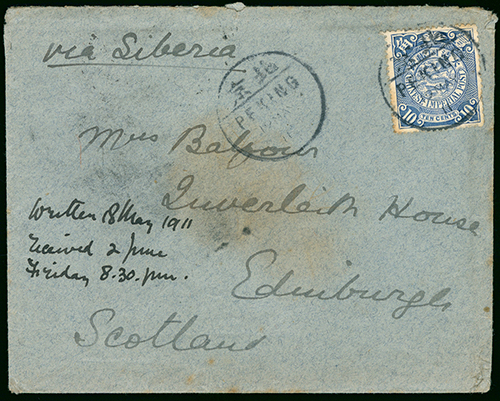 via Siberia
北
京
PEKING
PEKING
CHINESE IMPERIAL POST
10
TEN CENTS
10
Mrs Balfour
Inverleith House
Written 18 May 1911
received 2 June
Friday 8.30. pm.
Edinburgh
Scotland